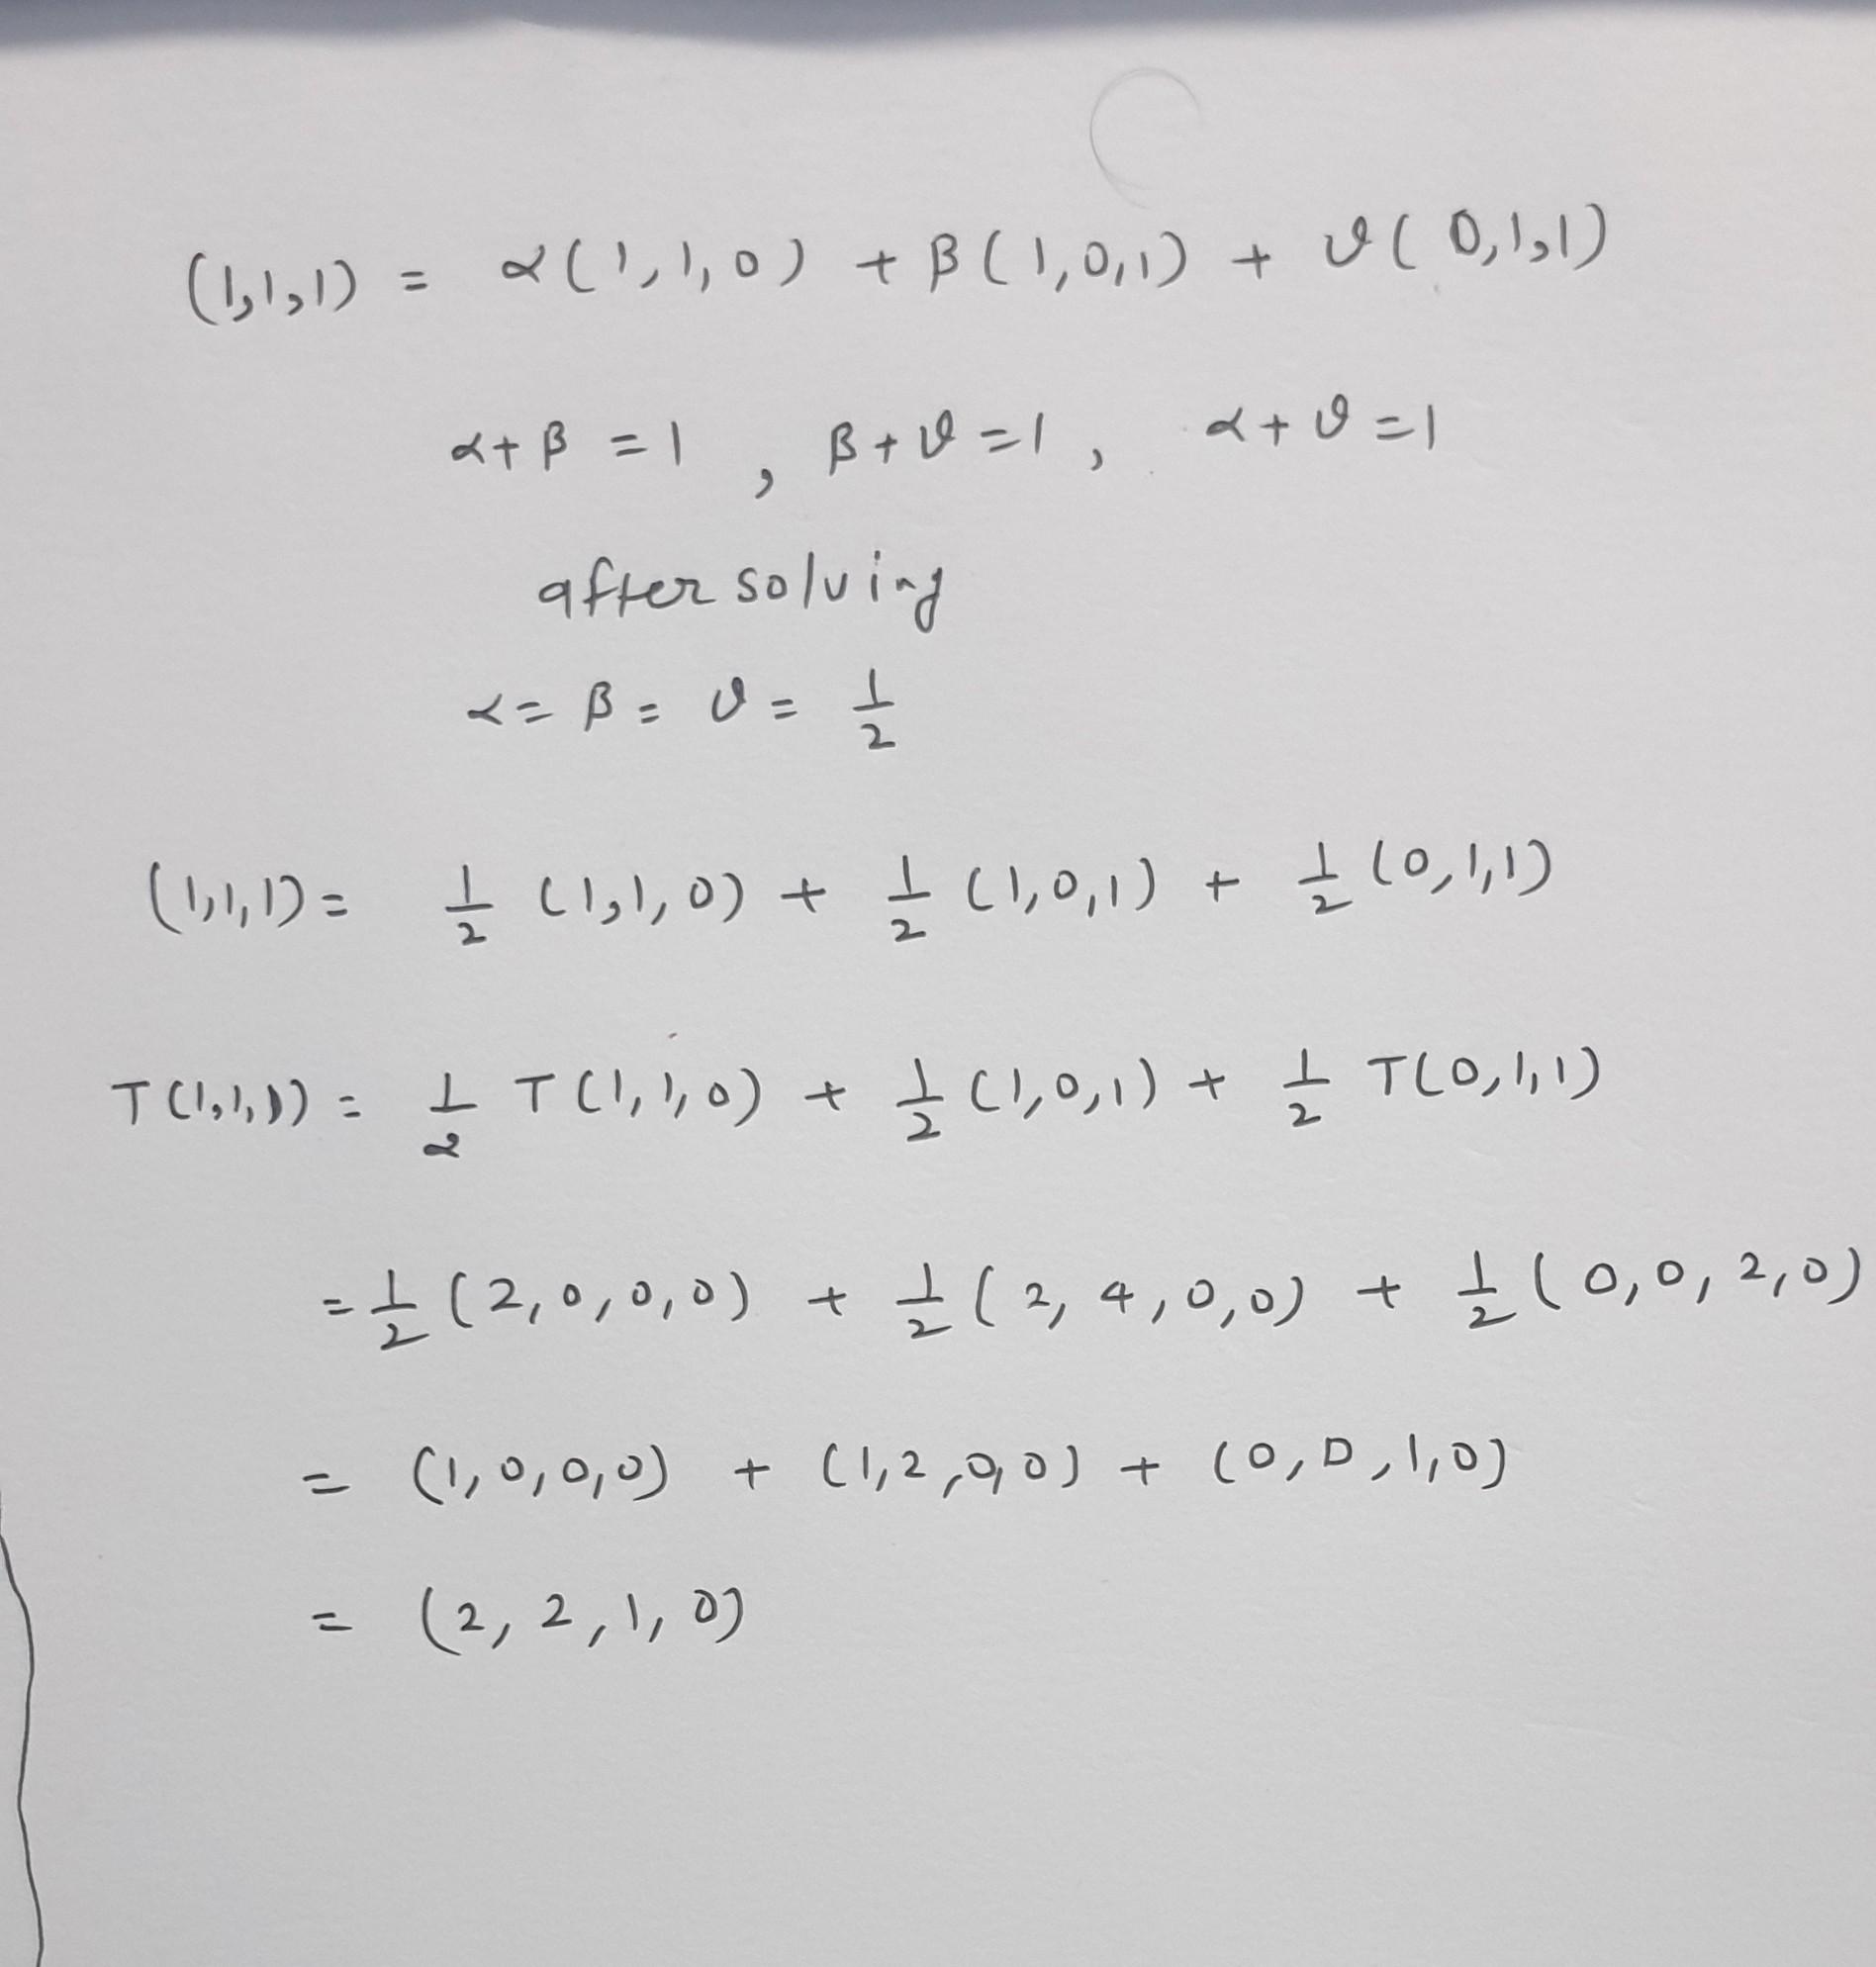 (1,1,1) = α(1,1,0) + β(1,0,1) + ϑ(0,1,1)
α+β =1 , β+ϑ=1 , α+ϑ=1
after solving
α= β= ϑ= 1/2
(1,1,1)= 1/2 (1,1,0) + 1/2 (1,0,1) + 1/2 (0,1,1)
T(1,1,1)) = 1/2 T(1,1,0) + 1/2 (1,0,1) + 1/2 T(0,1,1)
= 1/2 (2,0,0,0) + 1/2 (2,4,0,0) + 1/2 (0,0,2,0)
= (1,0,0,0) + (1,2,0,0) + (0,0,1,0)
= (2,2,1,0)